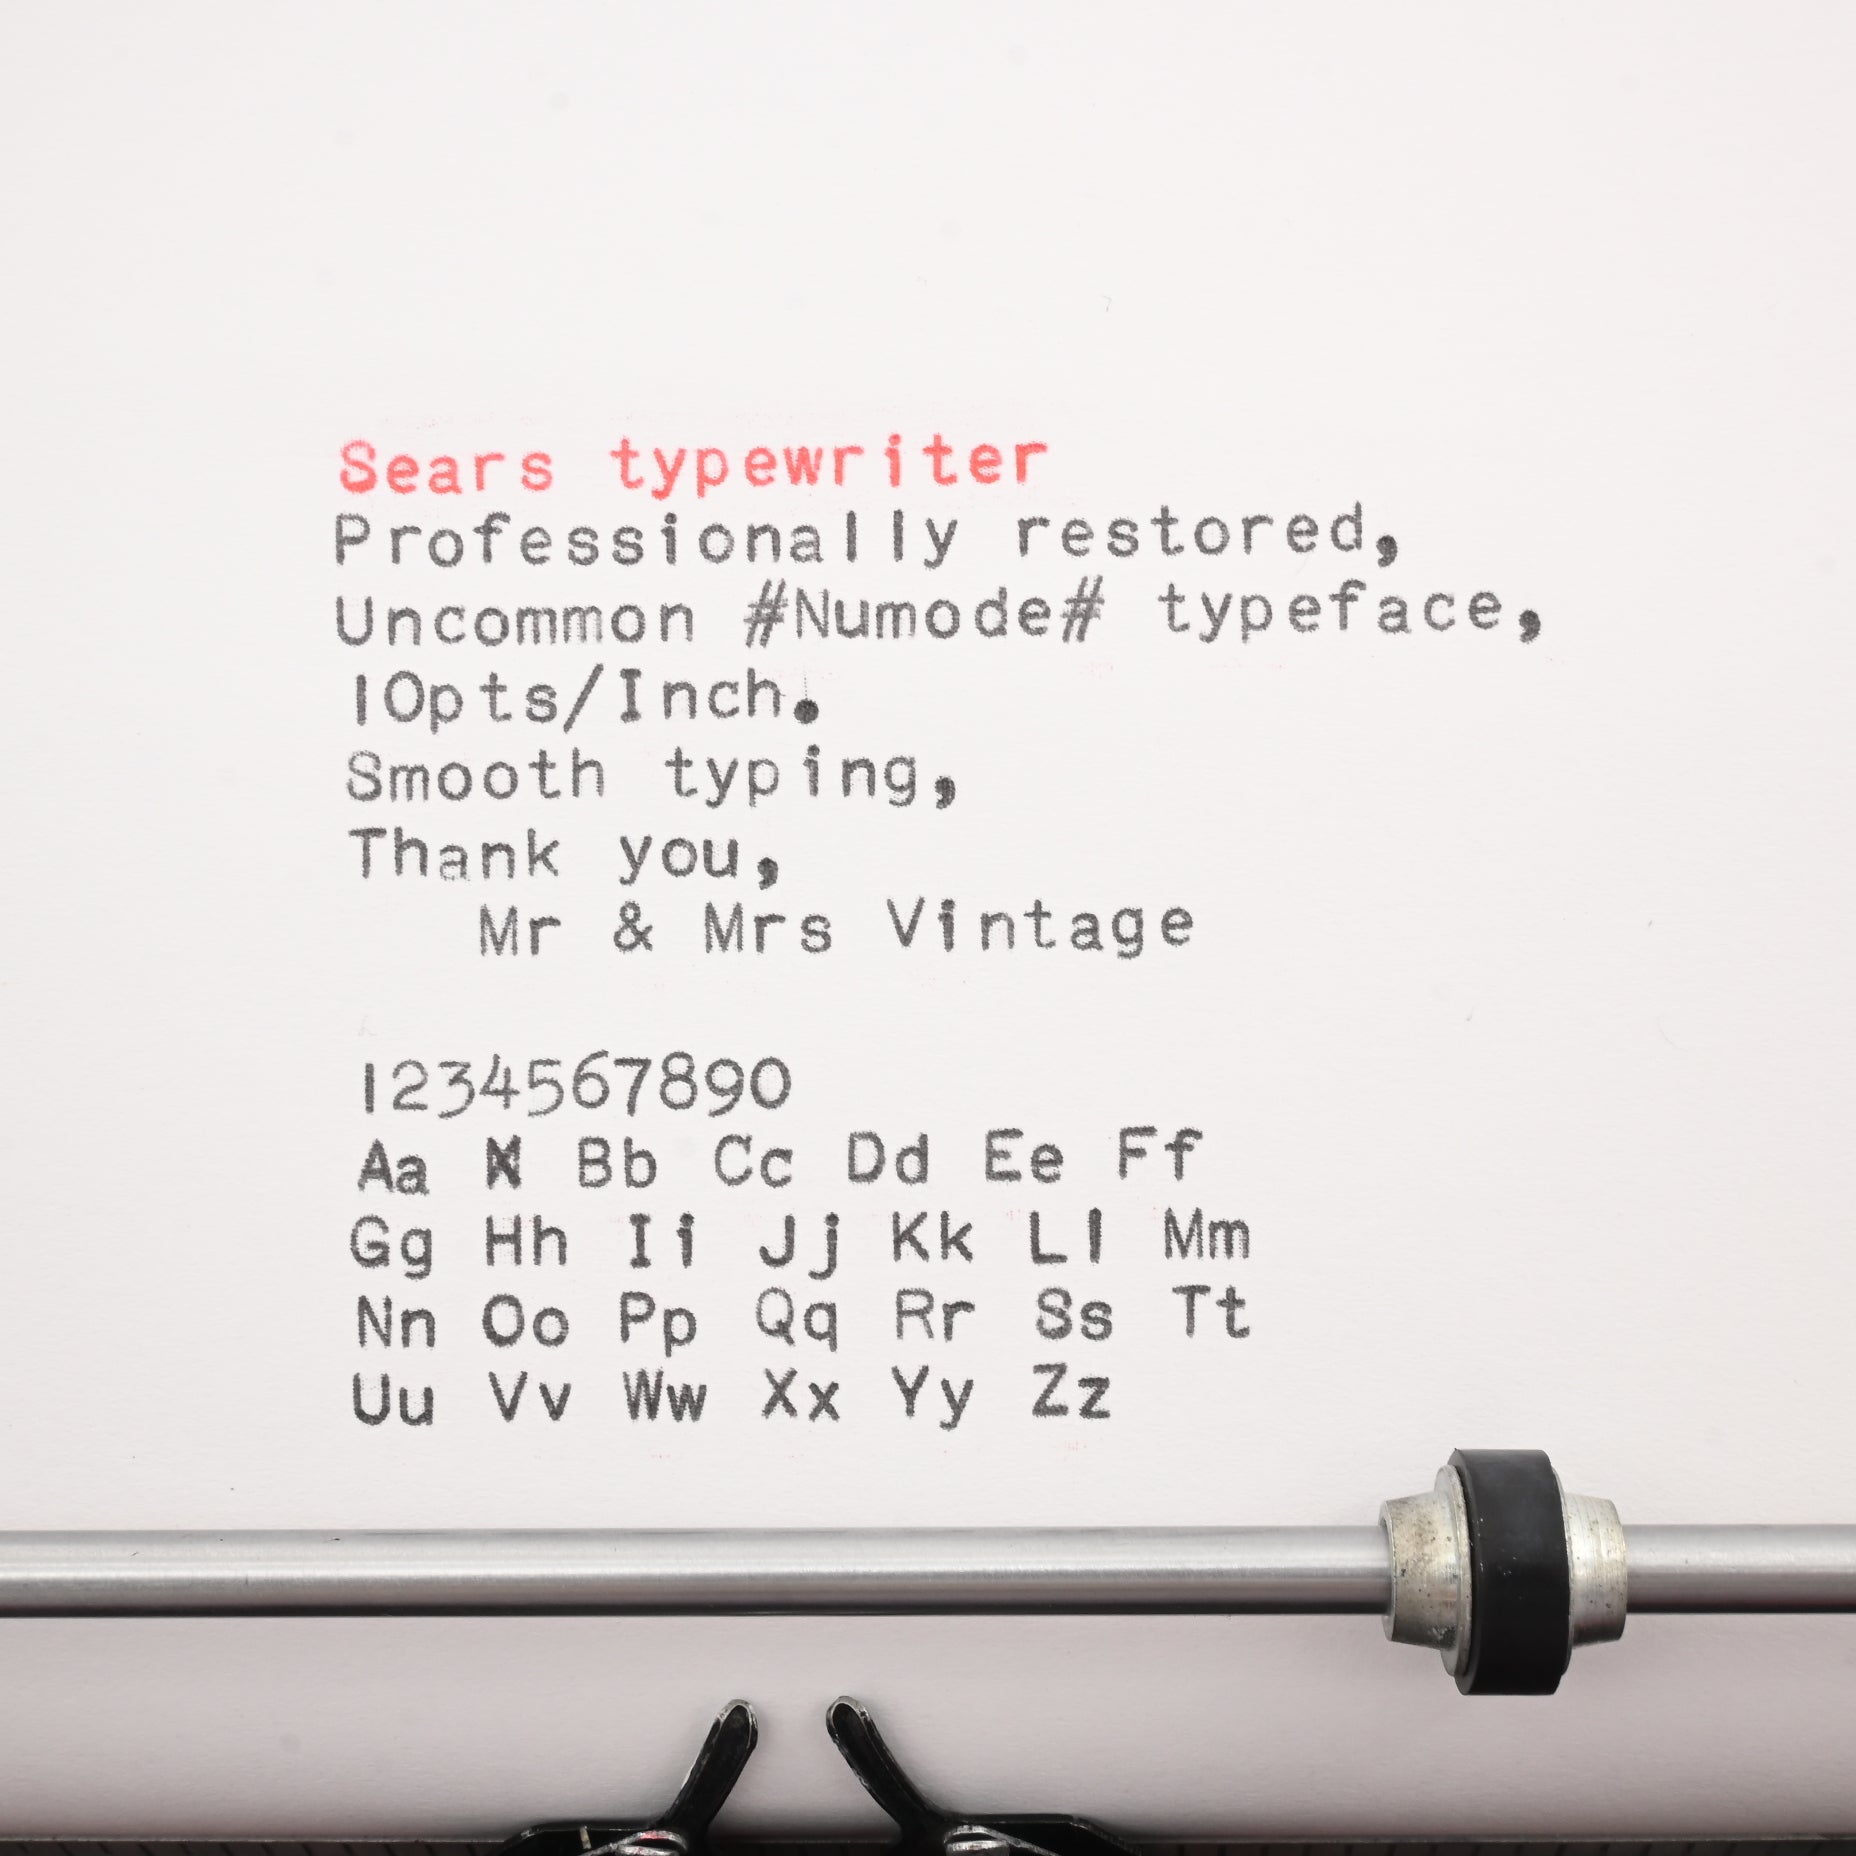 Sears typewriter
Professionally restored,
Uncommon #Numode# typeface,
10pts/Inch.
Smooth typing,
Thank you,
Mr & Mrs Vintage
1234567890
Aa Bb Cc Dd Ee Ff
Gg Hh Ii Jj Kk Ll Mm
Nn Oo Pp Qq Rr Ss Tt
Uu Vv Ww Xx Yy Zz